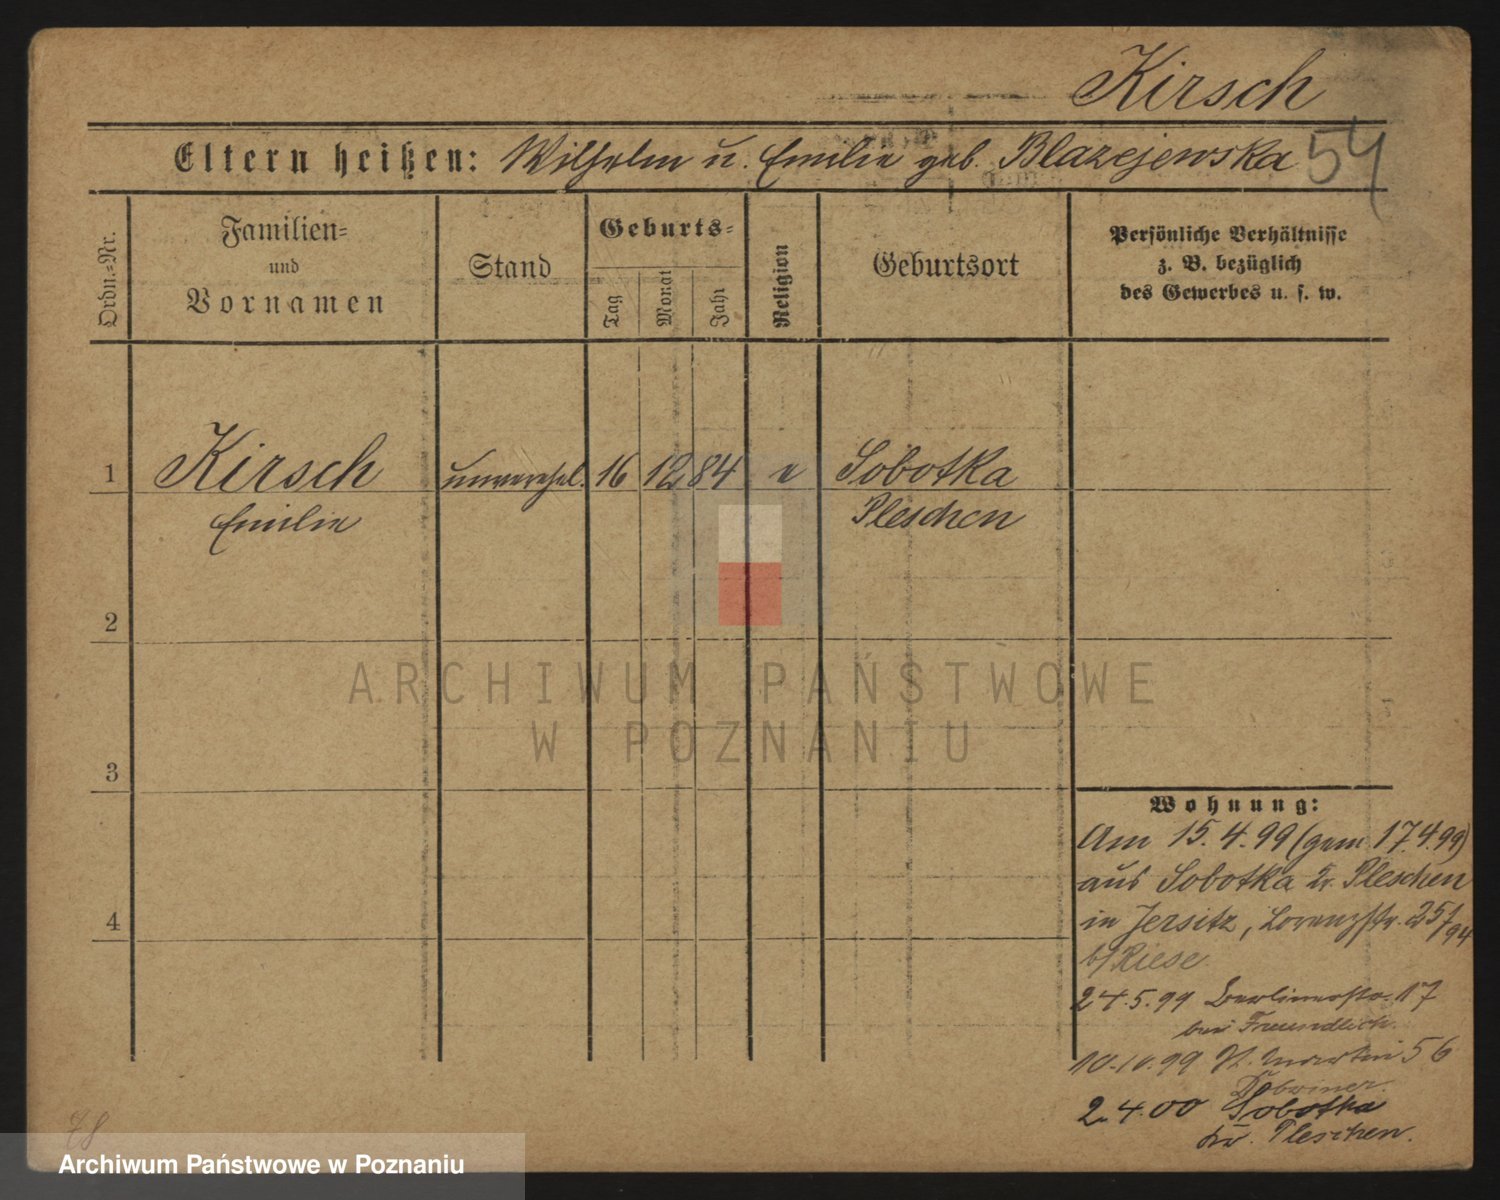 Kirsch
Eltern heißen: Wilhelm u. Emilie geb. Blazejewska
54
Ordn.=Nr.
Familien=
und
Vornamen
Stand
Geburts=
Tag
Monat
Jahr
Religion
Geburtsort
Persönliche Verhältnisse
z. B. bezüglich
des Gewerbes u. s. w.
1 Kirsch unverehel. 16 12 84 e Sobotka
Emilie Pleschen
2
3
4
Wohnung:
Am 15.4.99 (gem 17.4.99)
aus Sobotka Kr. Pleschen
in Jersitz, Lorenzstr. 25/94
b/Riese
24.5.99 Berlinerstr. 17
bei Freundlich.
10.10.99 St. Martin 56
Dobriner.
2.4.00 Sobotka
Kr. Pleschen.
78
ARCHIWUM PAŃSTWOWE
W POZNANIU
Archiwum Państwowe w Poznaniu